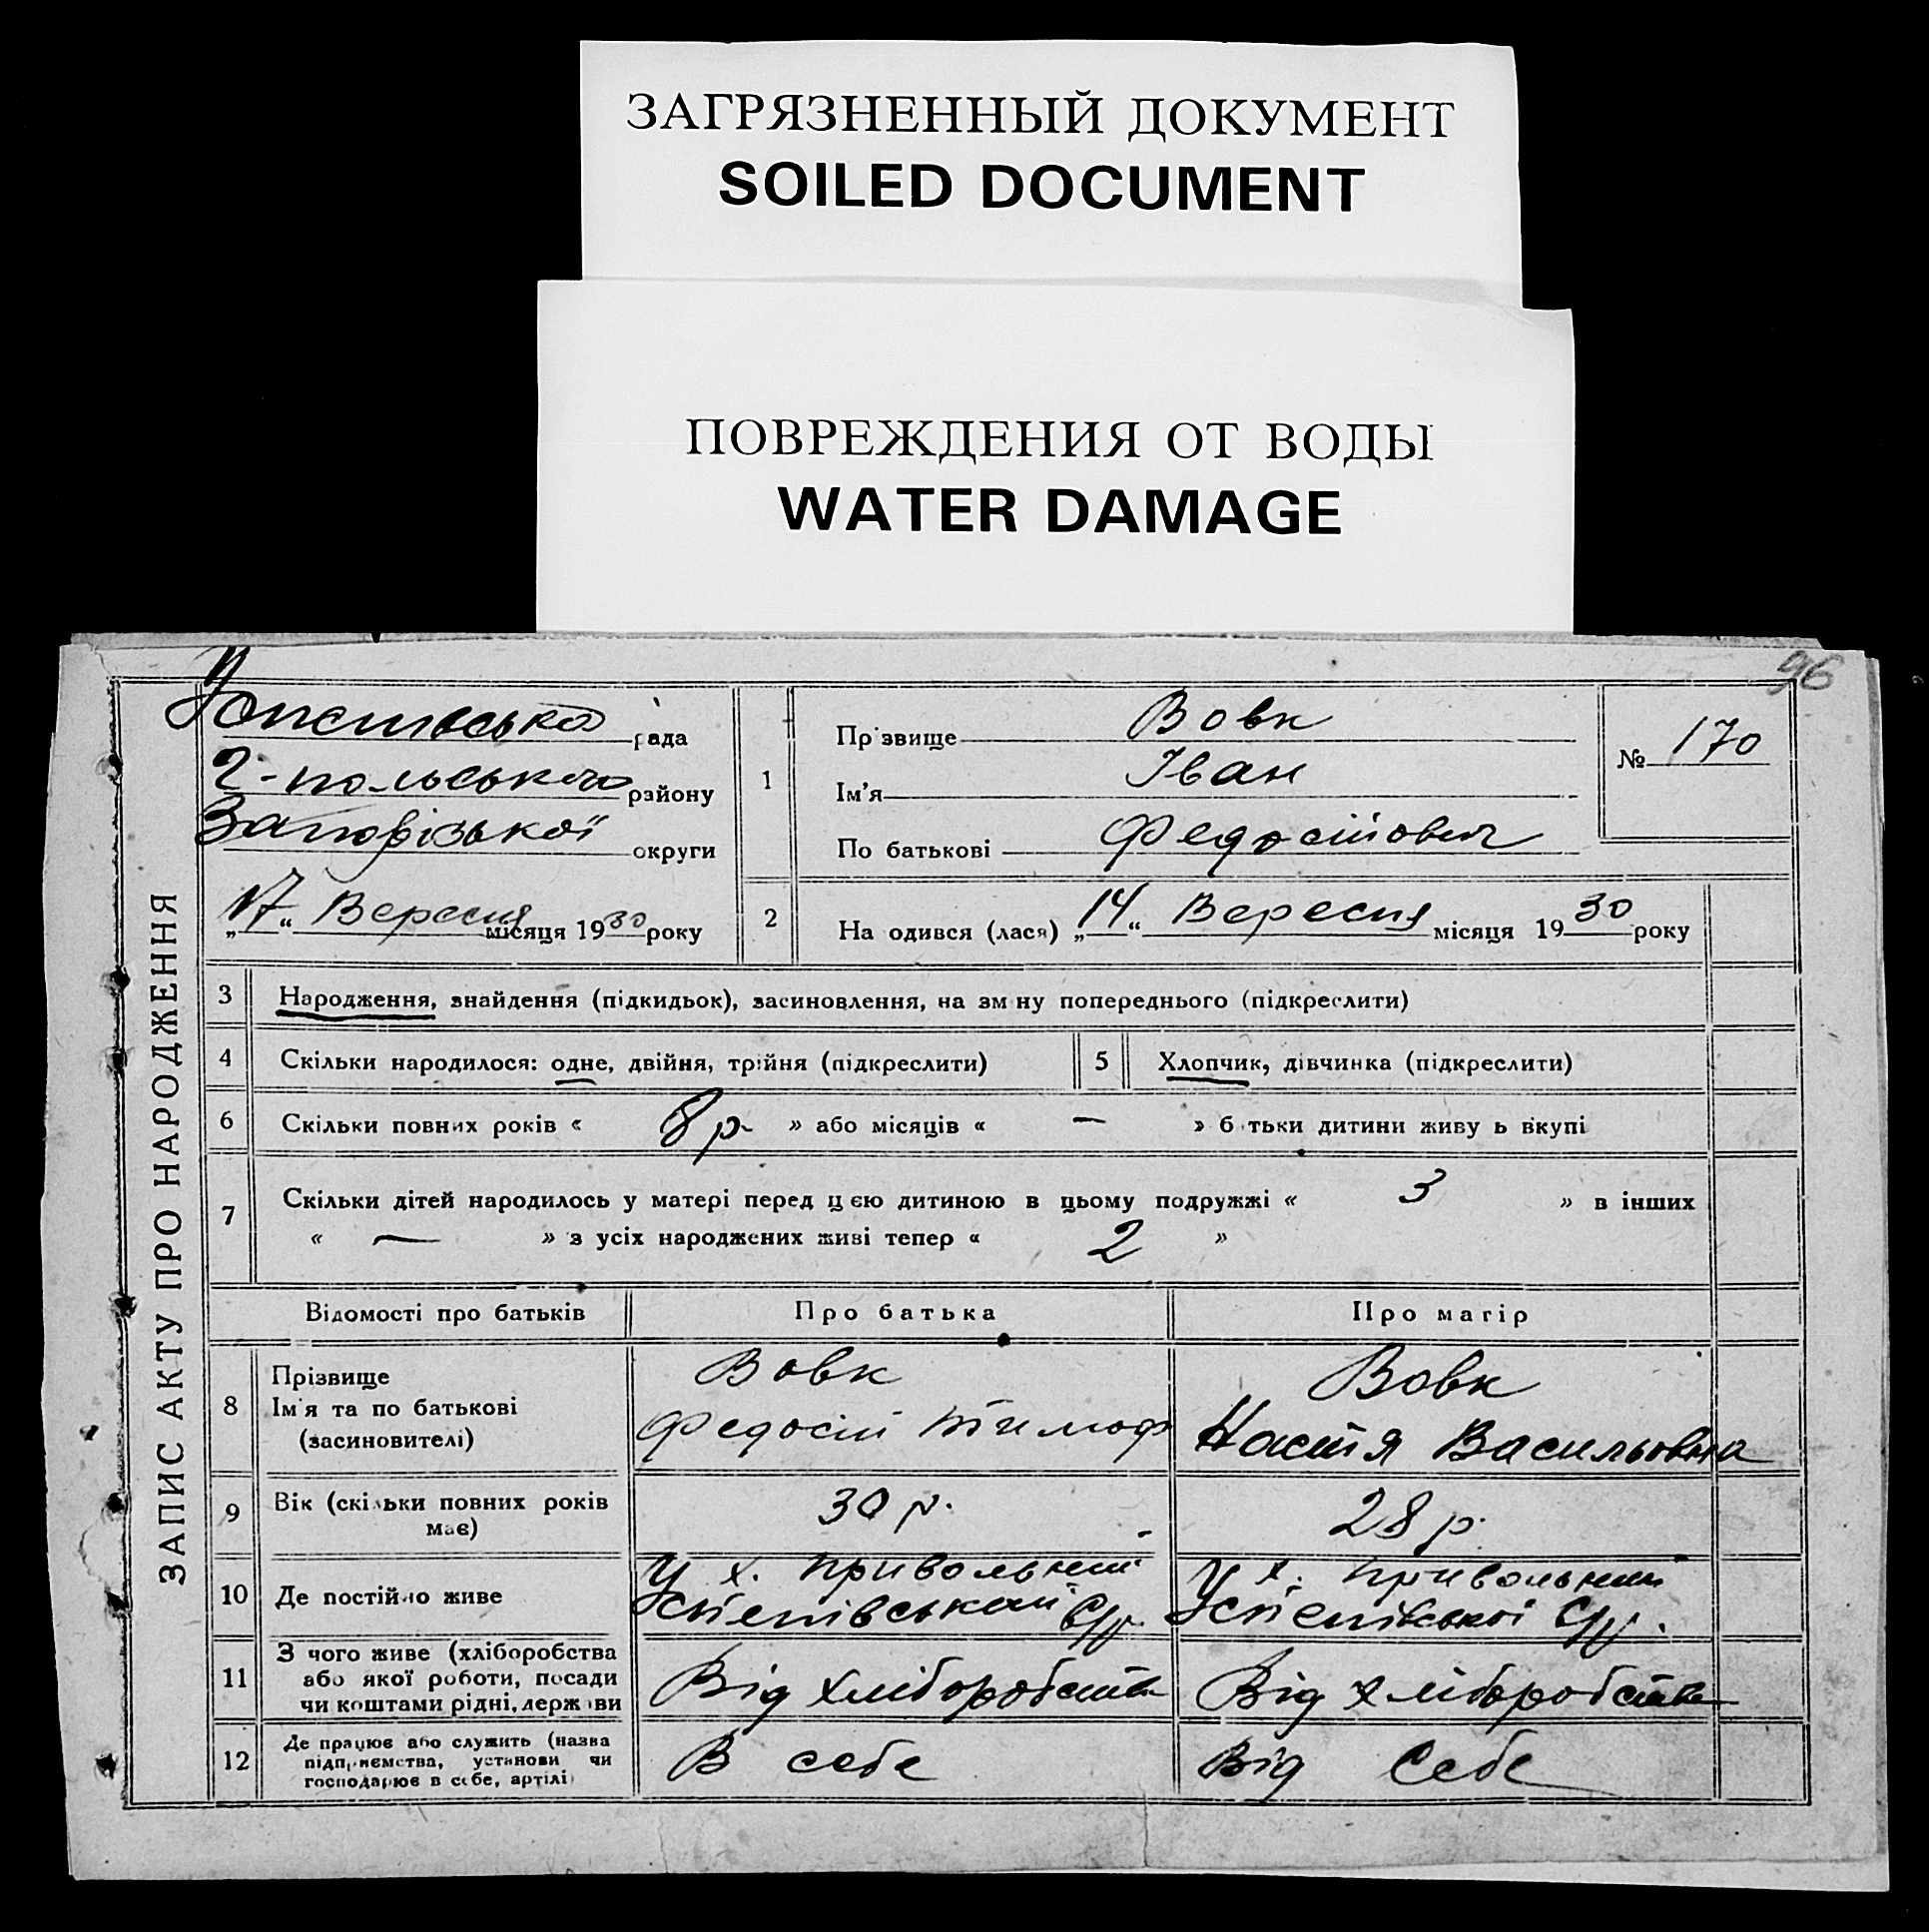 ЗАГРЯЗНЕННЫЙ ДОКУМЕНТ
SOILED DOCUMENT
ПОВРЕЖДЕНИЯ ОТ ВОДЫ
WATER DAMAGE
96
ЗАПИС АКТУ ПРО НАРОДЖЕННЯ
рада
Г-польського району
Запорізької округи
„17“ Вересня місяця 1930 року
1
Прізвище Вовк
Ім’я Іван
По батькові Федосійович
№ 170
2
На одився (лася) „14“ Вересня місяця 1930 року
3 Народження, знайдення (підкидьок), засиновлення, на зм ну попереднього (підкреслити)
4 Скільки народилося: одне, двійня, трійня (підкреслити)
5 Хлопчик, дівчинка (підкреслити)
6 Скільки повних років « 8 р. » або місяців « — » б тьки дитини живу ь вкупі
7 Скільки дітей народилось у матері перед цією дитиною в цьому подружжі « 3 » в інших
« — » з усіх народжених живі тепер « 2 »
Відомості про батьків Про батька Про матір
8 Прізвище
Ім’я та по батькові
(засиновителі)
Вовк
Федосій Тимоф
Вовк
Настя Васильовна
9 Вік (скільки повних років
має)
30 р.
28 р.
10 Де постійно живе
У х. Привольний
Успенівський С/р.
У х. Привольний
Успенівської С/р.
11 З чого живе (хліборобства
або якої роботи, посади
чи коштами рідні, держави
Від хліборобства
Від хліборобства
12 Де працює або служить (назва
підприємства, установи чи
господарює в себе, артілі)
В себе
Від Себе